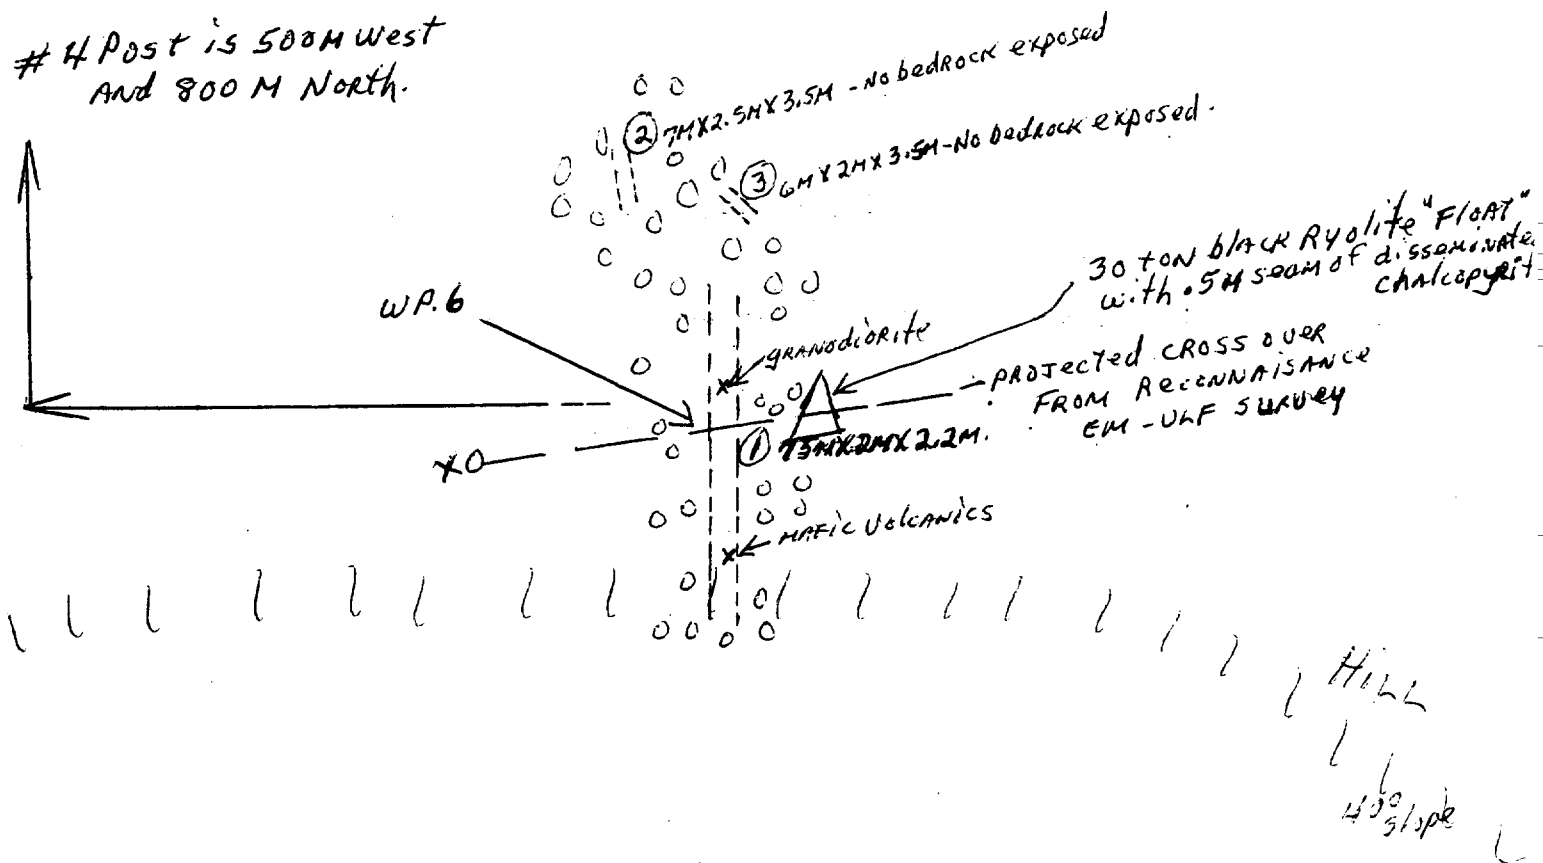 # 4 Post is 500M West
And 800 M North.
② 7M X 2.5M X 3.5M - No bedrock exposed
③ 6M X 2M X 3.5M - No bedrock exposed.
30 ton black Ryolite "Float"
with .5M seam of disseminate
chalcopyrit
WP.6
granodiorite
- Projected cross over
From Reconnaisance
EM - VLF Survey
XO
① X2MX2.2M.
mafic volcanics
Hill
40° slope